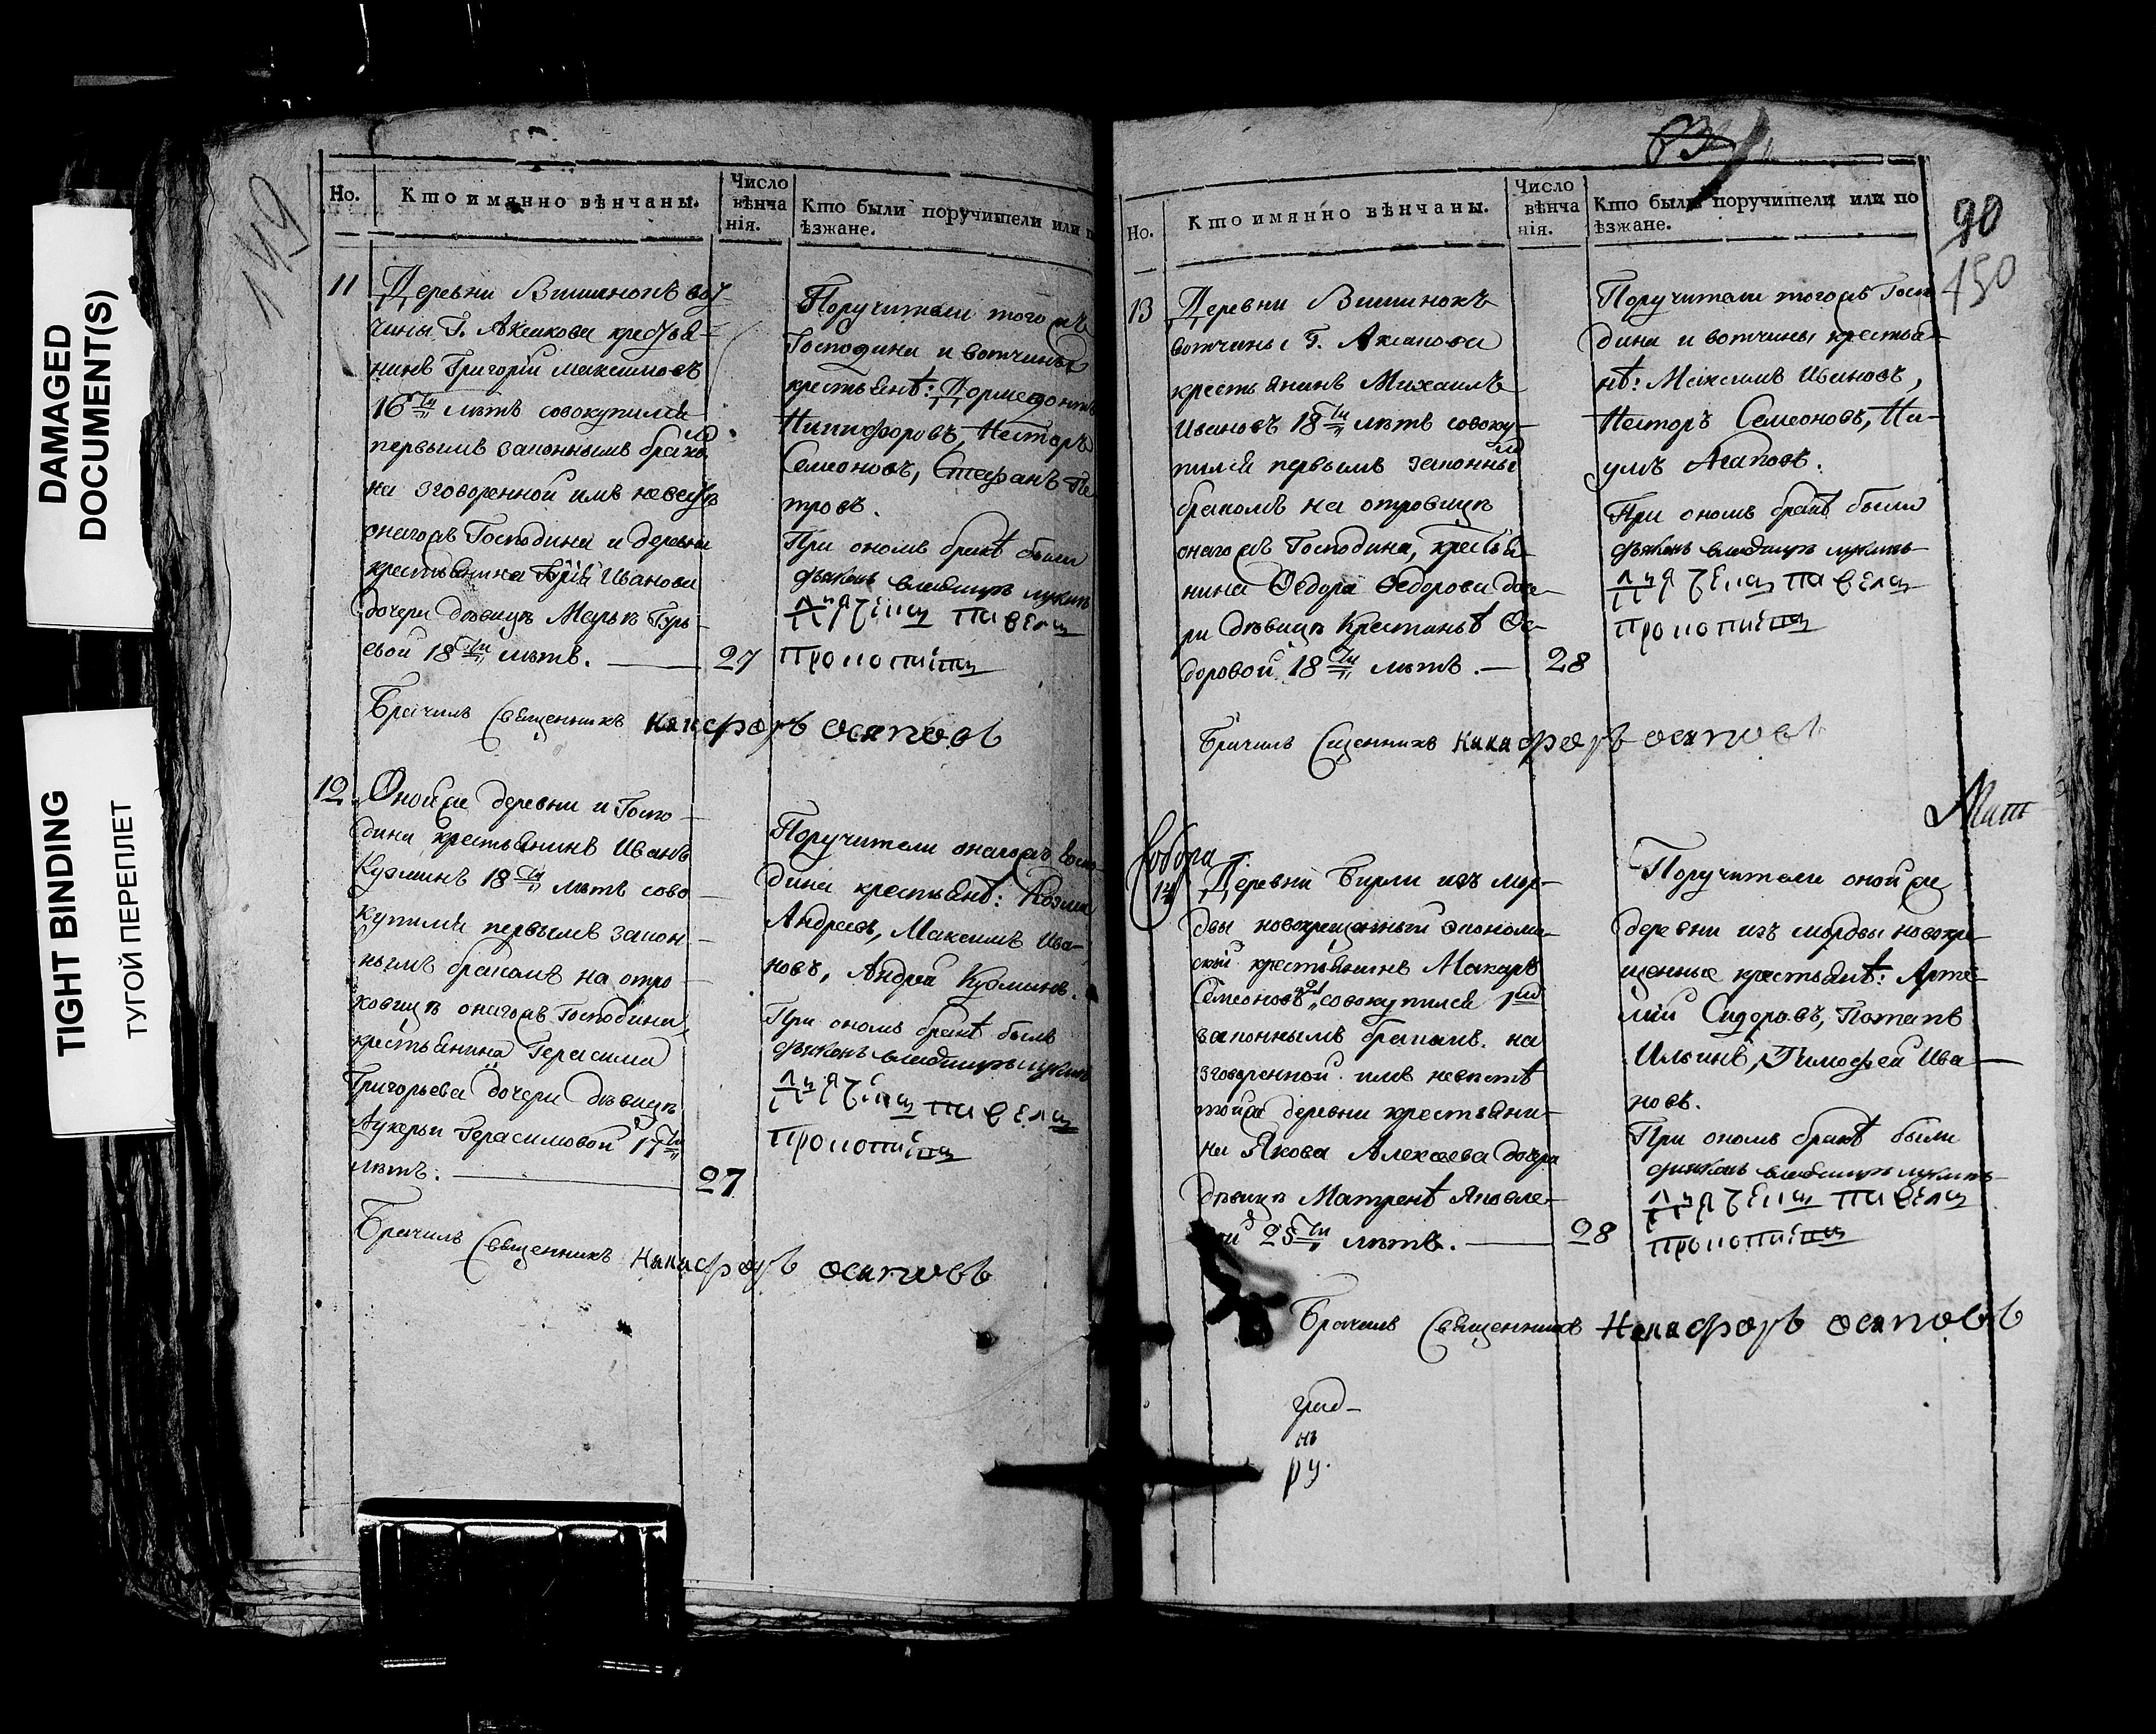 DAMAGED
DOCUMENT(S)
TIGHT BINDING
ТУГОЙ ПЕРЕПЛЕТ
149
Но.
Кто имянно вѣнчаны.
Число
вѣнча
нія.
Кто были поручители или п
ѣзжане.
11
Деревни Вишинокъ вот-
чины Г. Аксакова крестья-
нинъ Григорій Максимовъ
16ти лѣтъ совокупился
первымъ законнымъ бракомъ
на зговоренной имъ невестѣ
оногожъ Господина и деревни
крестьянина Гурія Иванова
дочери дѣвицѣ Марьѣ Гурь-
евой 18ти лѣтъ.
27
Поручители того жъ
Господина и вотчины
крестьянѣ: Дормедонтъ
Никифоровъ, Несторъ
Семеоновъ, Стефанъ Пе
тровъ.
При ономъ бракѣ были
дьяконъ владимиръ лукинъ
дьячекъ павелъ
прокопиевъ
Брачилъ Священникъ Никифоръ осиповъ
12
Оной же деревни и Госпо-
дина крестьянинъ Иванъ
Кузминъ 18ти лѣтъ сово-
купился первымъ закон-
нымъ бракомъ на отро-
ковицѣ оногожъ Господина
крестьянина Герасима
Григорьева дочери дѣвицѣ
Лукерьи Герасимовой 17ти
лѣтъ.
27
Поручители оногожъ Госпо-
дина крестьянѣ: Козма
Андреевъ, Максимъ Ива-
новъ, Андрей Кузминъ.
При ономъ бракѣ былъ
дьяконъ владимиръ лукинъ
дьячекъ павелъ
прокопиевъ
Брачилъ Священникъ Никифоръ осиповъ
90
450
Но.
Кто имянно вѣнчаны.
Число
вѣнча
нія.
Кто были поручители или по
ѣзжане.
13
Деревни Вишинокъ
вотчины Г. Аксакова
крестьянинъ Михаилъ
Ивановъ 18ти лѣтъ совоку-
пился первымъ законнымъ
бракомъ на отровицѣ
оногожъ Господина, крестья-
нина Ѳедора Ѳедорова доче-
ри дѣвицѣ Крестинѣ Ѳе-
доровой 18ти лѣтъ.
28
Поручители тогожъ Госпо
дина и вотчины крестья-
нѣ: Максимъ Ивановъ,
Несторъ Семеоновъ, На-
умъ Агаповъ.
При ономъ бракѣ были
дьяконъ владимиръ лукинъ
дьячекъ павелъ
прокопиевъ
Брачилъ Сщенникъ Никифоръ осиповъ
собора
14
Деревни Бирли изъ мор-
двы новокрещенный экономи-
ской крестьянинъ Макаръ
Семеоновъ совокупился 1мъ
законнымъ бракомъ на
зговоренной имъ невестѣ
тойже деревни крестьяни-
на Якова Алексеева дочери
дѣвицѣ Матренѣ Яковле-
25ти лѣтъ.
28
Поручители оной же
деревни изъ мордвы новокре-
щенные крестьянѣ: Арте-
мій Сидоровъ, Потапъ
Ильинъ, Тимофей Ива-
новъ.
При ономъ бракѣ были
дьяконъ владимиръ лукинъ
дьячекъ павелъ
прокопиевъ
Брачилъ Священникъ Никифоръ осиповъ